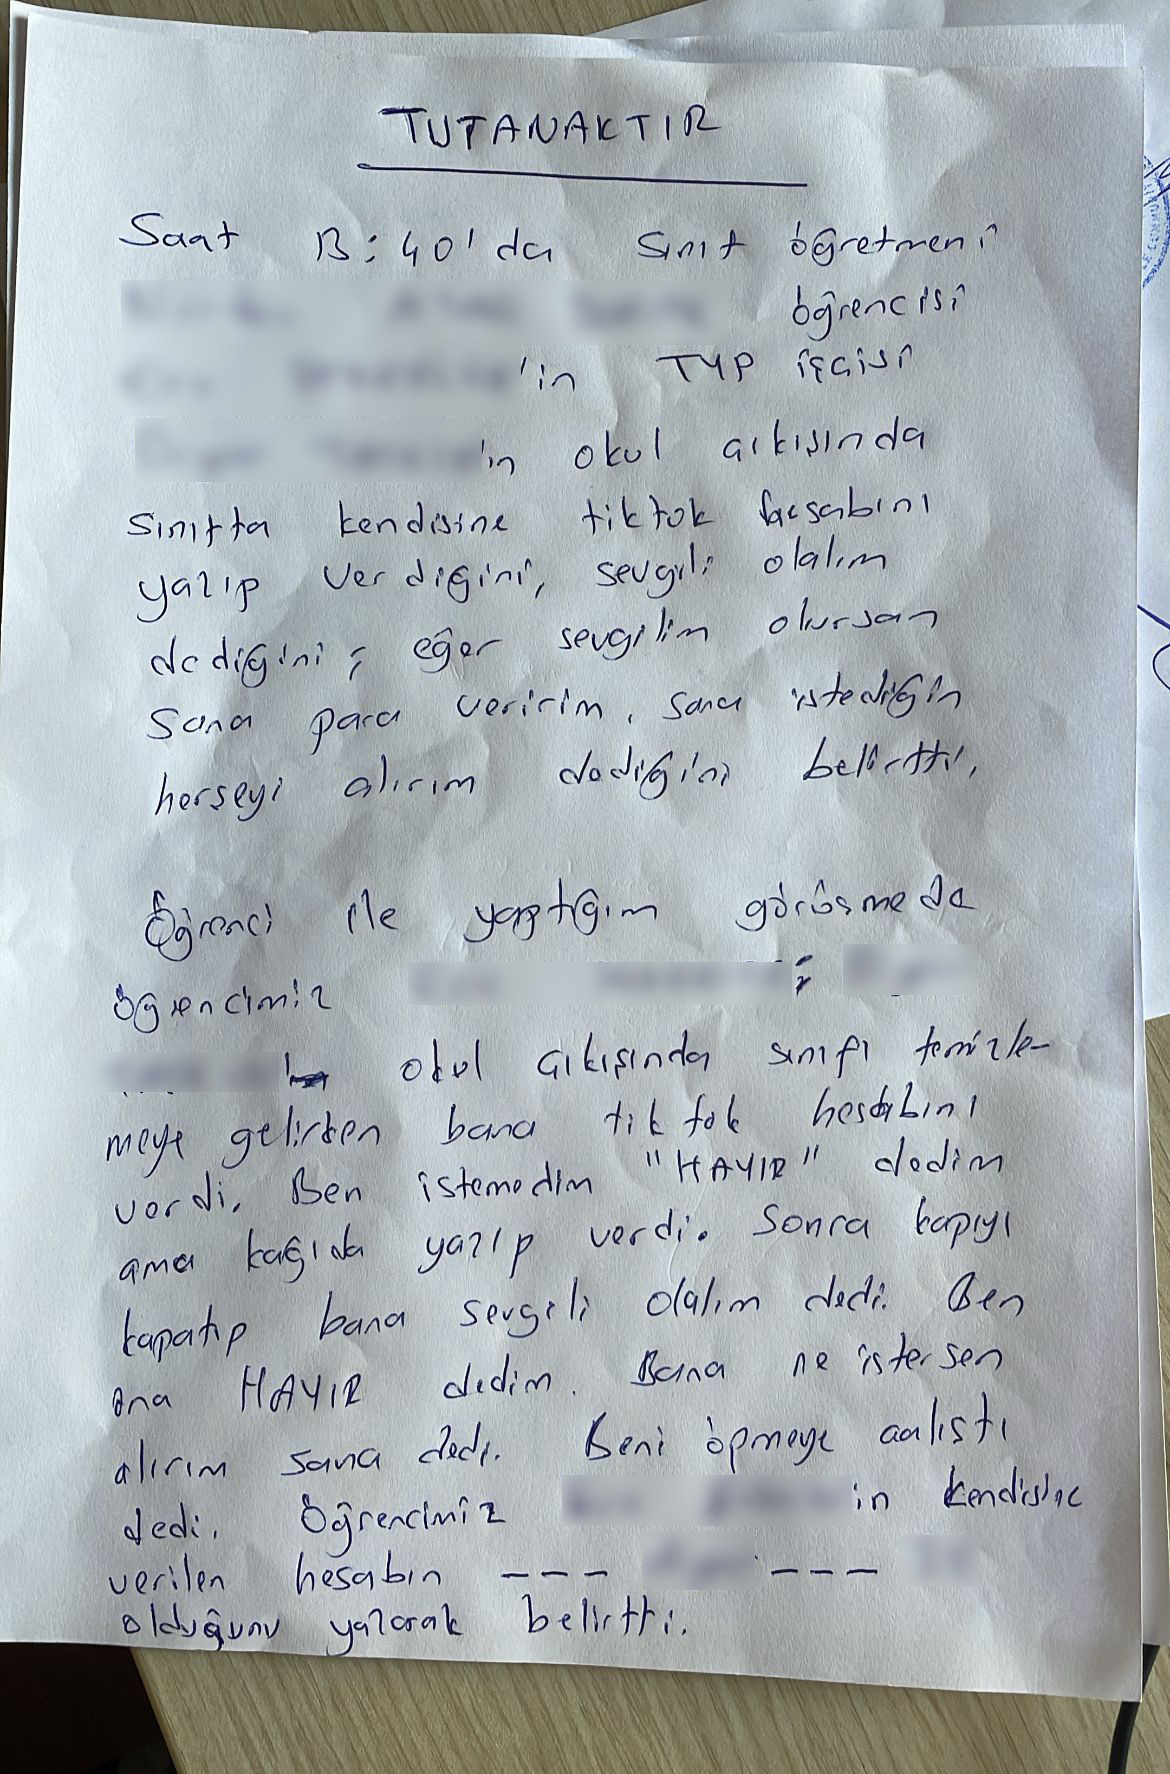 TUTANAKTIR
Saat 13:40'da Sınıf öğretmeni
öğrencisi
'in TYP işçisi
'in okul çıkışında
sınıfta kendisine tiktok hesabını
yazıp verdiğini, sevgili olalım
dediğini; eğer sevgilim olursan
Sana para veririm, sana istediğin
herseyi alırım dediğini belirtti.
Öğrenci ile yaptığım görüşmede
öğrencimiz ;
okul çıkışında sınıfı temizle-
meye gelirken bana tiktok hesabını
verdi. Ben istemedim "HAYIR" dedim
ama kağıda yazıp verdi. Sonra kapıyı
kapatıp bana sevgili olalım dedi. Ben
ona HAYIR dedim. Bana ne istersen
alırım sana dedi. Beni öpmeye çalıştı
dedi. Öğrencimiz in kendisine
verilen hesabın --- ---
olduğunu yazarak belirtti.